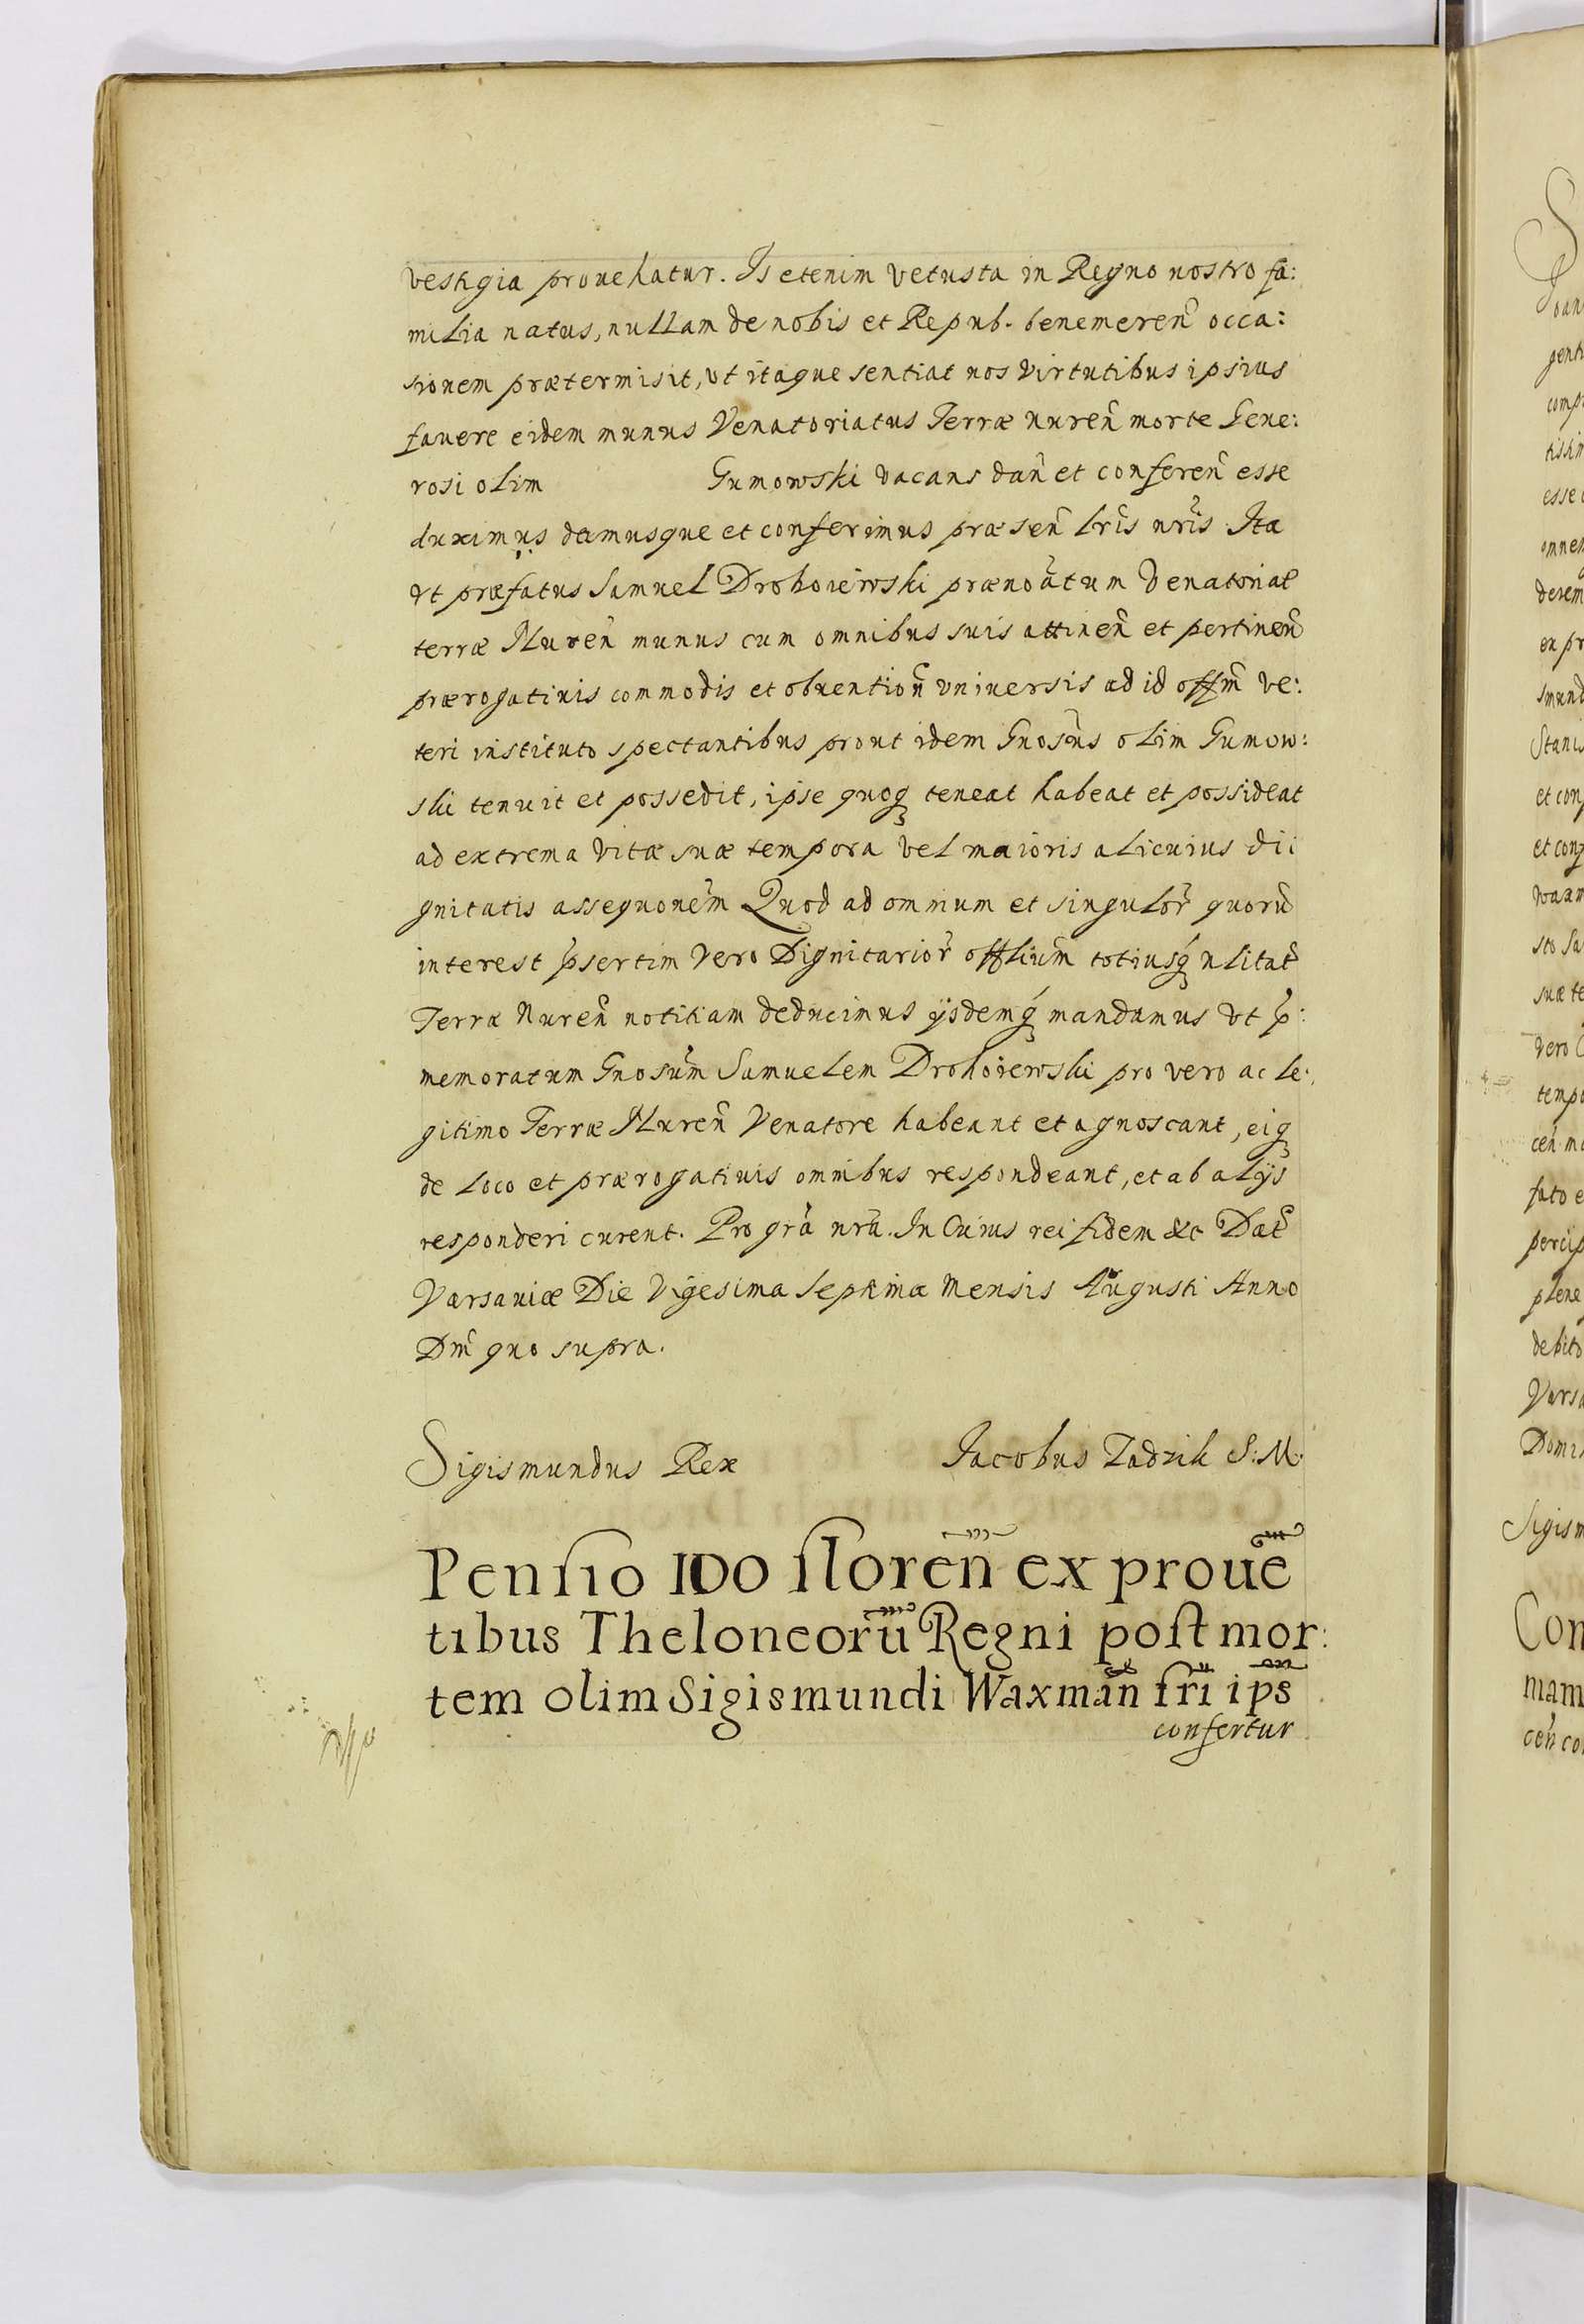 vestigia prouehatur. Is etenim vetusta in Regno nostro fa:
milia natus, nullam de nobis et Repub. benemeren̄ occa:
sionem prætermisit, vt itaque sentiat nos virtutibus ipsius
fauere eidem munus Venatoriatus Terræ nuren̄ morte Gene:
rosi olim Gumowski vacans dan̄ et conferen̄ esse
duximus damusque et conferimus præsen̄ lr̄is nr̄is Ita
vt præfatus Samuel Drohoiewski prænoātum Venatoriat̄
terræ Nuren̄ munus cum omnibus suis attinen̄ et pertinen̄
prærogatiuis commodis et obuention̄ vniuersis ad id off̄m ve:
teri instituto spectantibus prout idem Gnosūs olim Gumow:
ski tenuit et possedit, ipse quoq teneat habeat et possideat
ad extrema vitæ suæ tempora vel maioris alicuius di:
gnitatis assequonēm Quod ad omnium et singulor̄ quorū
interest p̄sertim vero Dignitarior̄ offliūm totiusq́ nlitat̄
Terræ Nuren̄ notitiam deducimus ijsdemq́ mandamus vt p̄:
memoratum Gnosūm Samuelem Drohoiewski pro vero ac le:
gitimo Terræ Nuren̄ Venatore habeant et agnoscant, eiq
de loco et prærogatiuis omnibus respondeant, et ab alijs
responderi curent. Pro gr̄a nr̄a. In Cuius rei fidem &c Dat̄
Varsauiæ Die Vigesima Septima Mensis Augusti Anno
Dn̄i quo supra.
Sigismundus Rex Iacobus Zadzik S: M.
Pensio 100 floren̄ ex prouē
tibus Theloneorū Regni post mor:
tem olim Sigismundi Waxmān fr̄i ip̄s
confertur